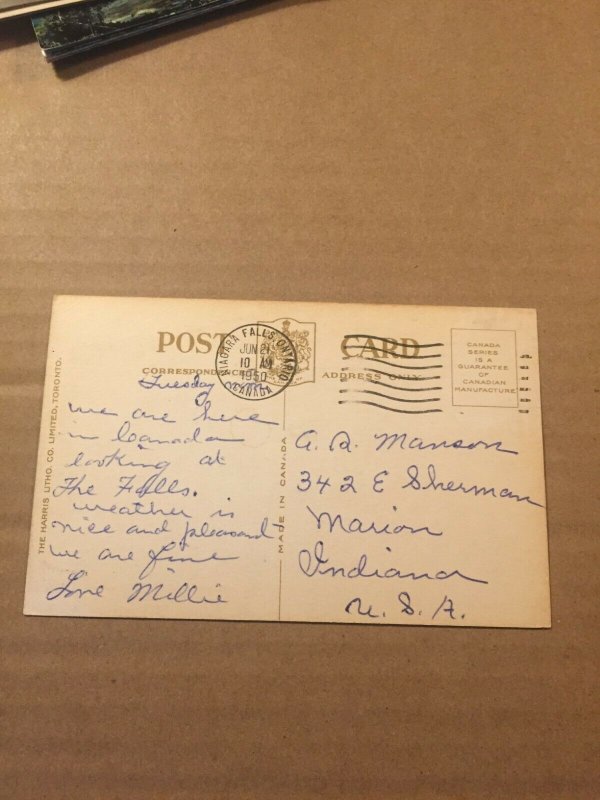 POST CARD
CORRESPONDENCE
ADDRESS ONLY
NIAGARA FALLS, ONTARIO
JUN 2
10 AM
1950
CANADA
CANADA
SERIES
IS A
GUARANTEE
OF
CANADIAN
MANUFACTURE
THE HARRIS LITHO. CO. LIMITED, TORONTO.
MADE IN CANADA
Tuesday
we are here
in Canada
looking at
The Falls.
weather is
nice and pleasant
we are fine
Love Millie
A. B. Manson
342 E Sherman
Marion
Indiana
U. S. A.